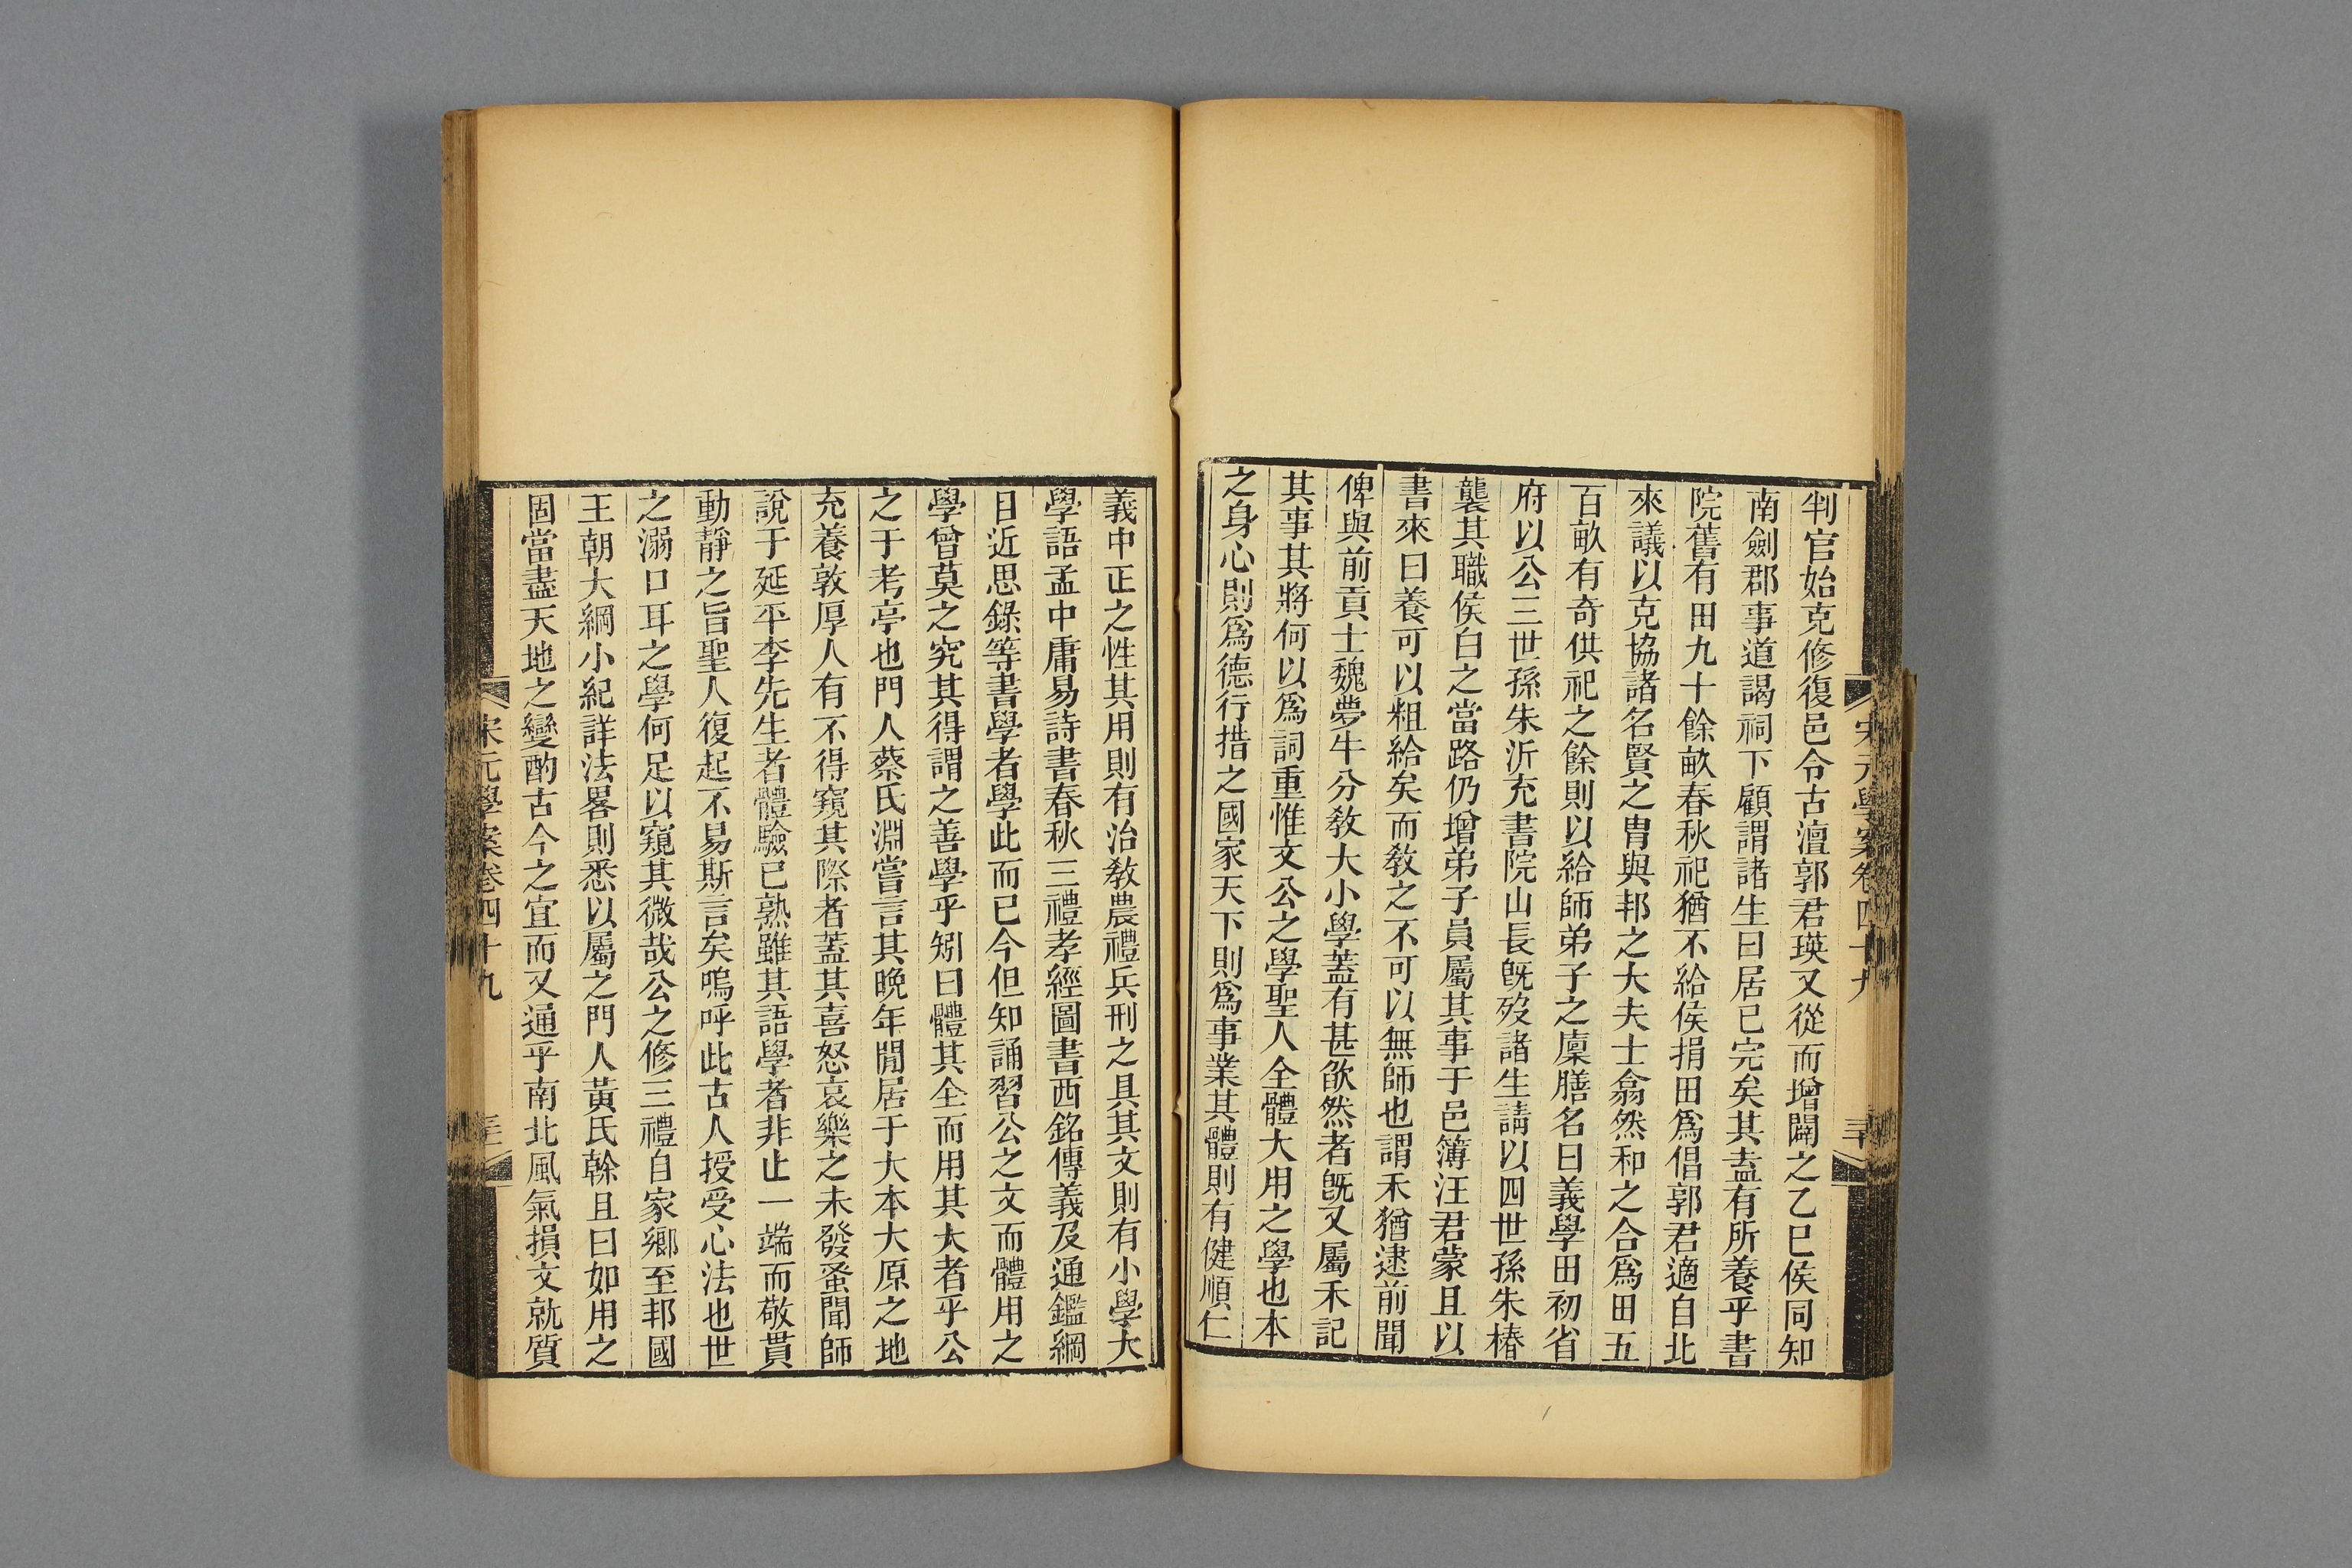 判官始克修復邑令古澶郭君瑛又從而增闢之乙巳侯同知
南劍郡事道謁祠下顧謂諸生曰居已完矣其盍有所養乎書
院舊有田九十餘畝春秋祀猶不給侯捐田爲倡郭君適自北
來議以克協諸名賢之胄與邦之大夫士翕然和之合爲田五
百畝有奇供祀之餘則以給師弟子之廩膳名曰義學田初省
府以公三世孫朱沂充書院山長旣歿諸生請以四世孫朱椿
襲其職侯白之當路仍增弟子員屬其事于邑簿汪君蒙且以
書來曰養可以粗給矣而敎之不可以無師也謂禾猶逮前聞
俾與前貢士魏夢牛分敎大小學蓋有甚欿然者旣又屬禾記
其事其將何以爲詞重惟文公之學聖人全體大用之學也本
之身心則爲德行措之國家天下則爲事業其體則有健順仁
宋元學案卷四十九
義中正之性其用則有治敎農禮兵刑之具其文則有小學大
學語孟中庸易詩書春秋三禮孝經圖書西銘傳義及通鑑綱
目近思錄等書學者學此而已今但知誦習公之文而體用之
學曾莫之究其得謂之善學乎矧曰體其全而用其大者乎公
之于考亭也門人蔡氏淵嘗言其晩年閒居于大本大原之地
充養敦厚人有不得窺其際者蓋其喜怒哀樂之未發蚤聞師
說于延平李先生者體驗已熟雖其語學者非止一端而敬貫
動靜之旨聖人復起不易斯言矣嗚呼此古人授受心法也世
之溺口耳之學何足以窺其微哉公之修三禮自家鄉至邦國
王朝大綱小紀詳法畧則悉以屬之門人黃氏榦且曰如用之
固當盡天地之變酌古今之宜而又通乎南北風氣損文就質
宋元學案卷四十九